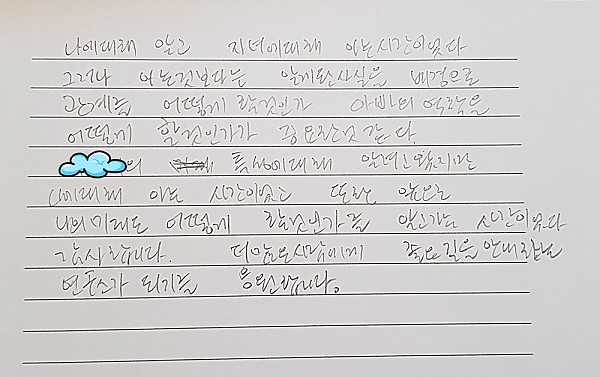 나에대해 알고 자녀에대해 아는시간이었다
그러나 아는것보다는 알게된사실을 배경으로
관계를 어떻게 할것인가 아빠의 역할을
어떻게 할것인가가 중요한것 같다.
의 특성에대해 알려고왔지만
나에대해 아는 시간이었고 또한 앞으로
나의미래도 어떻게 할것인가를 알고가는 시간이었다
감사합니다. 더많은사람에게 좋은길을안내하는
연구소가 되기를 응원합니다.